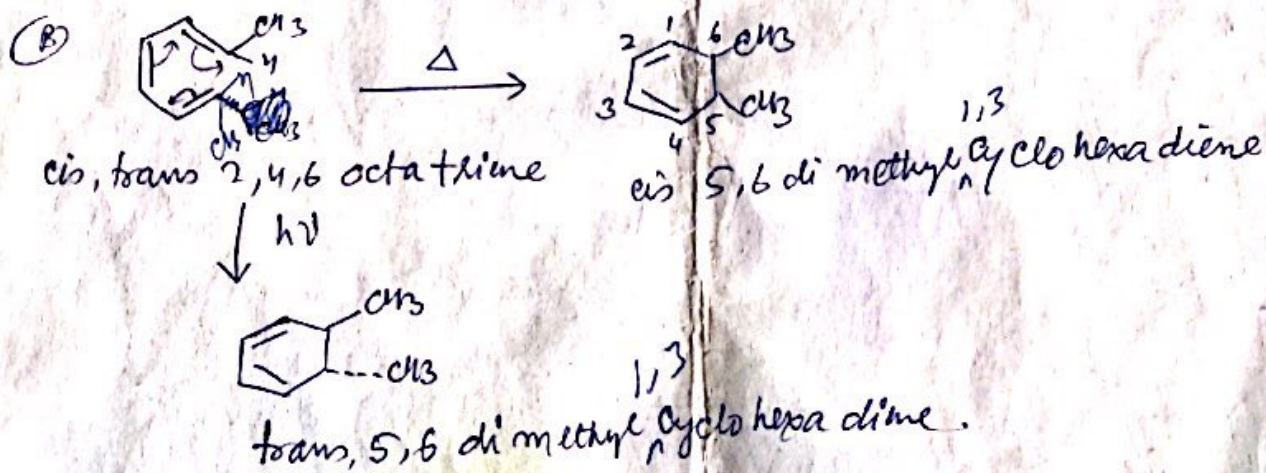 B
CH3
H
H
CH3
CH3
Δ
1
2
3
4
5
6
CH3
CH3
cis, trans 2,4,6 octatriene
1,3
cis 5,6 di methyl ^ cyclo hexa diene
hν
CH3
CH3
1,3
trans, 5,6 di methyl ^ cyclo hexa diene.